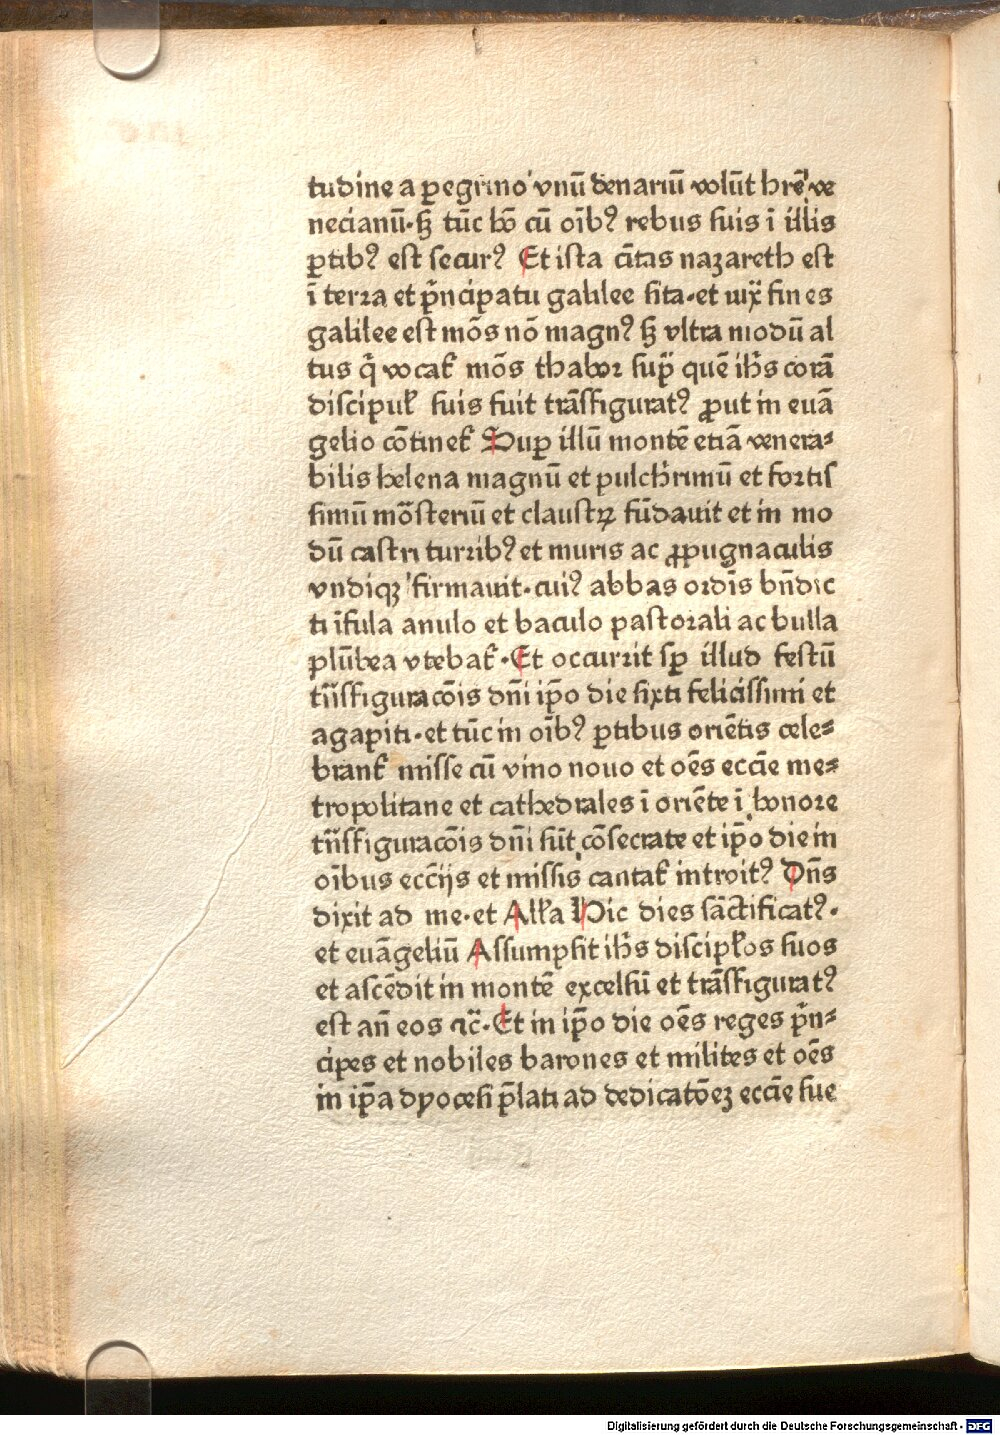 tudine a ꝑegrino vnū denariū volūt hr̄e ve
necianū·sꝫ tūc bō cū oīb⁹ rebus suis ī illis
ꝑtib⁹ est secur⁹ Et ista cītas nazareth est
ī terra et p̄ncipatu galilee sita·et iuxͣ fines
galilee est mōs nō magn⁹ sꝫ vltra modū al
tus q̄ vocat᷑ mōs thabor suꝑ quē ih̄s corā
discipul᷑ suis fuit trāsfigurat⁹ ꝓut in euā
gelio cōtinet᷑ Suꝑ illū montē etiā venera⸗
bilis helena magnū et pulch̄rimū et fortis
simū mōsteriū et claustrꝝ fūdauit et in mo
dū castri turrib⁹ et muris ac ꝓpugnaculis
vndiqꝫ firmauit·cui⁹ abbas ordīs bn̄dic
ti īfula anulo et baculo pastorali ac bulla
plūbea vtebat᷑·Et occurrit sꝑ illud festū
tn̄sfiguracōis dn̄i ip̄o die sixti felicissimi et
agapiti·et tūc in oīb⁹ ꝑtibus oriētis cele⸗
brant᷑ misse cū vino nouo et oēs eccīe me⸗
tropolitane et cathedrales ī oriēte ī honore
tn̄sfiguracōis dn̄i sūt cōsecrate et ip̄o die in
oībus ecc̄ijs et missis cantat᷑ introit⁹ Dn̄s
dixit ad me·et Alł̄a Hic dies sāctificat⁹·
et euāgeliū Assumpsit ih̄s discipłos suos
et ascēdit in montē excelsū et trāsfigurat⁹
est an̄ eos ⁊c̄·Et in ip̄o die oēs reges p̄n⸗
cipes et nobiles barones et milites et oēs
in ip̄a dyocesi p̄lati ad dedicatōeꝫ eccīe sue
Digitalisierung gefördert durch die Deutsche Forschungsgemeinschaft - DFG